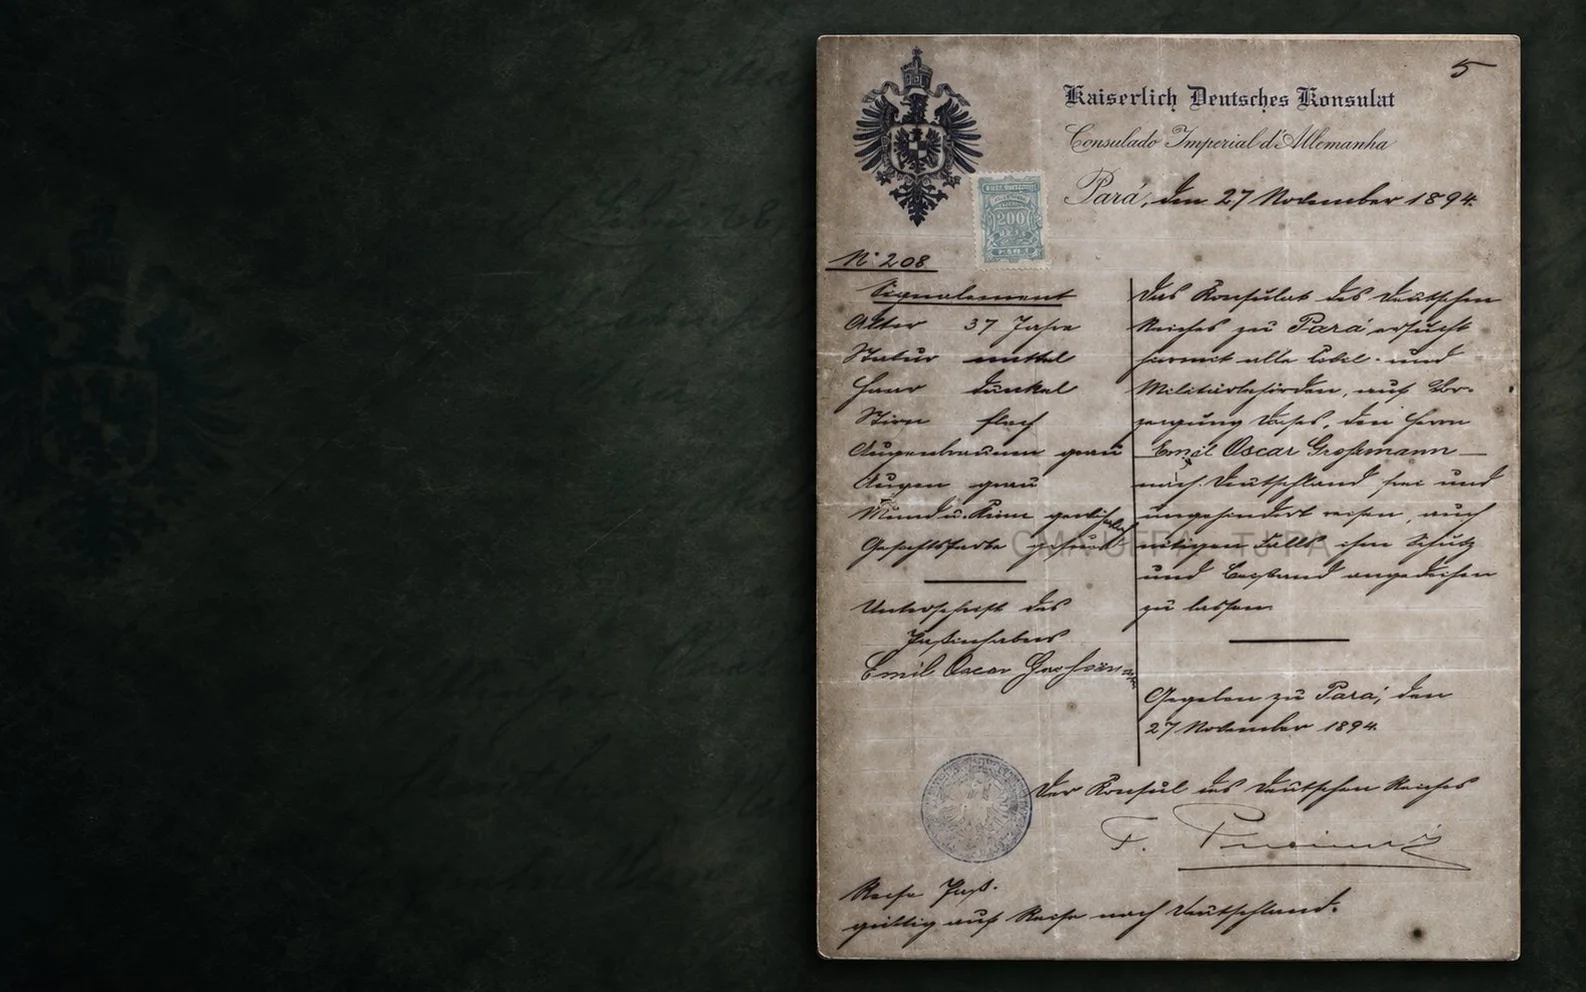 5
Kaiserlich Deutsches Konsulat
Consulado Imperial d'Allemanha
Pará, den 27 November 1894.
200
REIS
No. 208
Signalement
Alter 37 Jahre
Statur mittel
Haar dunkel
Stirn flach
Augenbraunen grau
Augen grau
Mund u. Kinn gewöhnlich
Gesichtsfarbe gesund
Unterschrift des
Paßinhabers
Emil Oscar Großmann
Das Konsulat des Deutschen
Reiches zu Pará ersucht
hiermit alle Civil- und
Militärbehörden, auf Vor-
zeigung dieses, den Herrn
Emil Oscar Großmann
nach Deutschland frei und
ungehindert reisen, auch
nötigen Falls ihm Schutz
und Beistand angedeihen
zu lassen
Gegeben zu Pará, den
27 November 1894.
Der Konsul des Deutschen Reiches
F.
Reise Paß.
gültig auf Reise nach Deutschland.